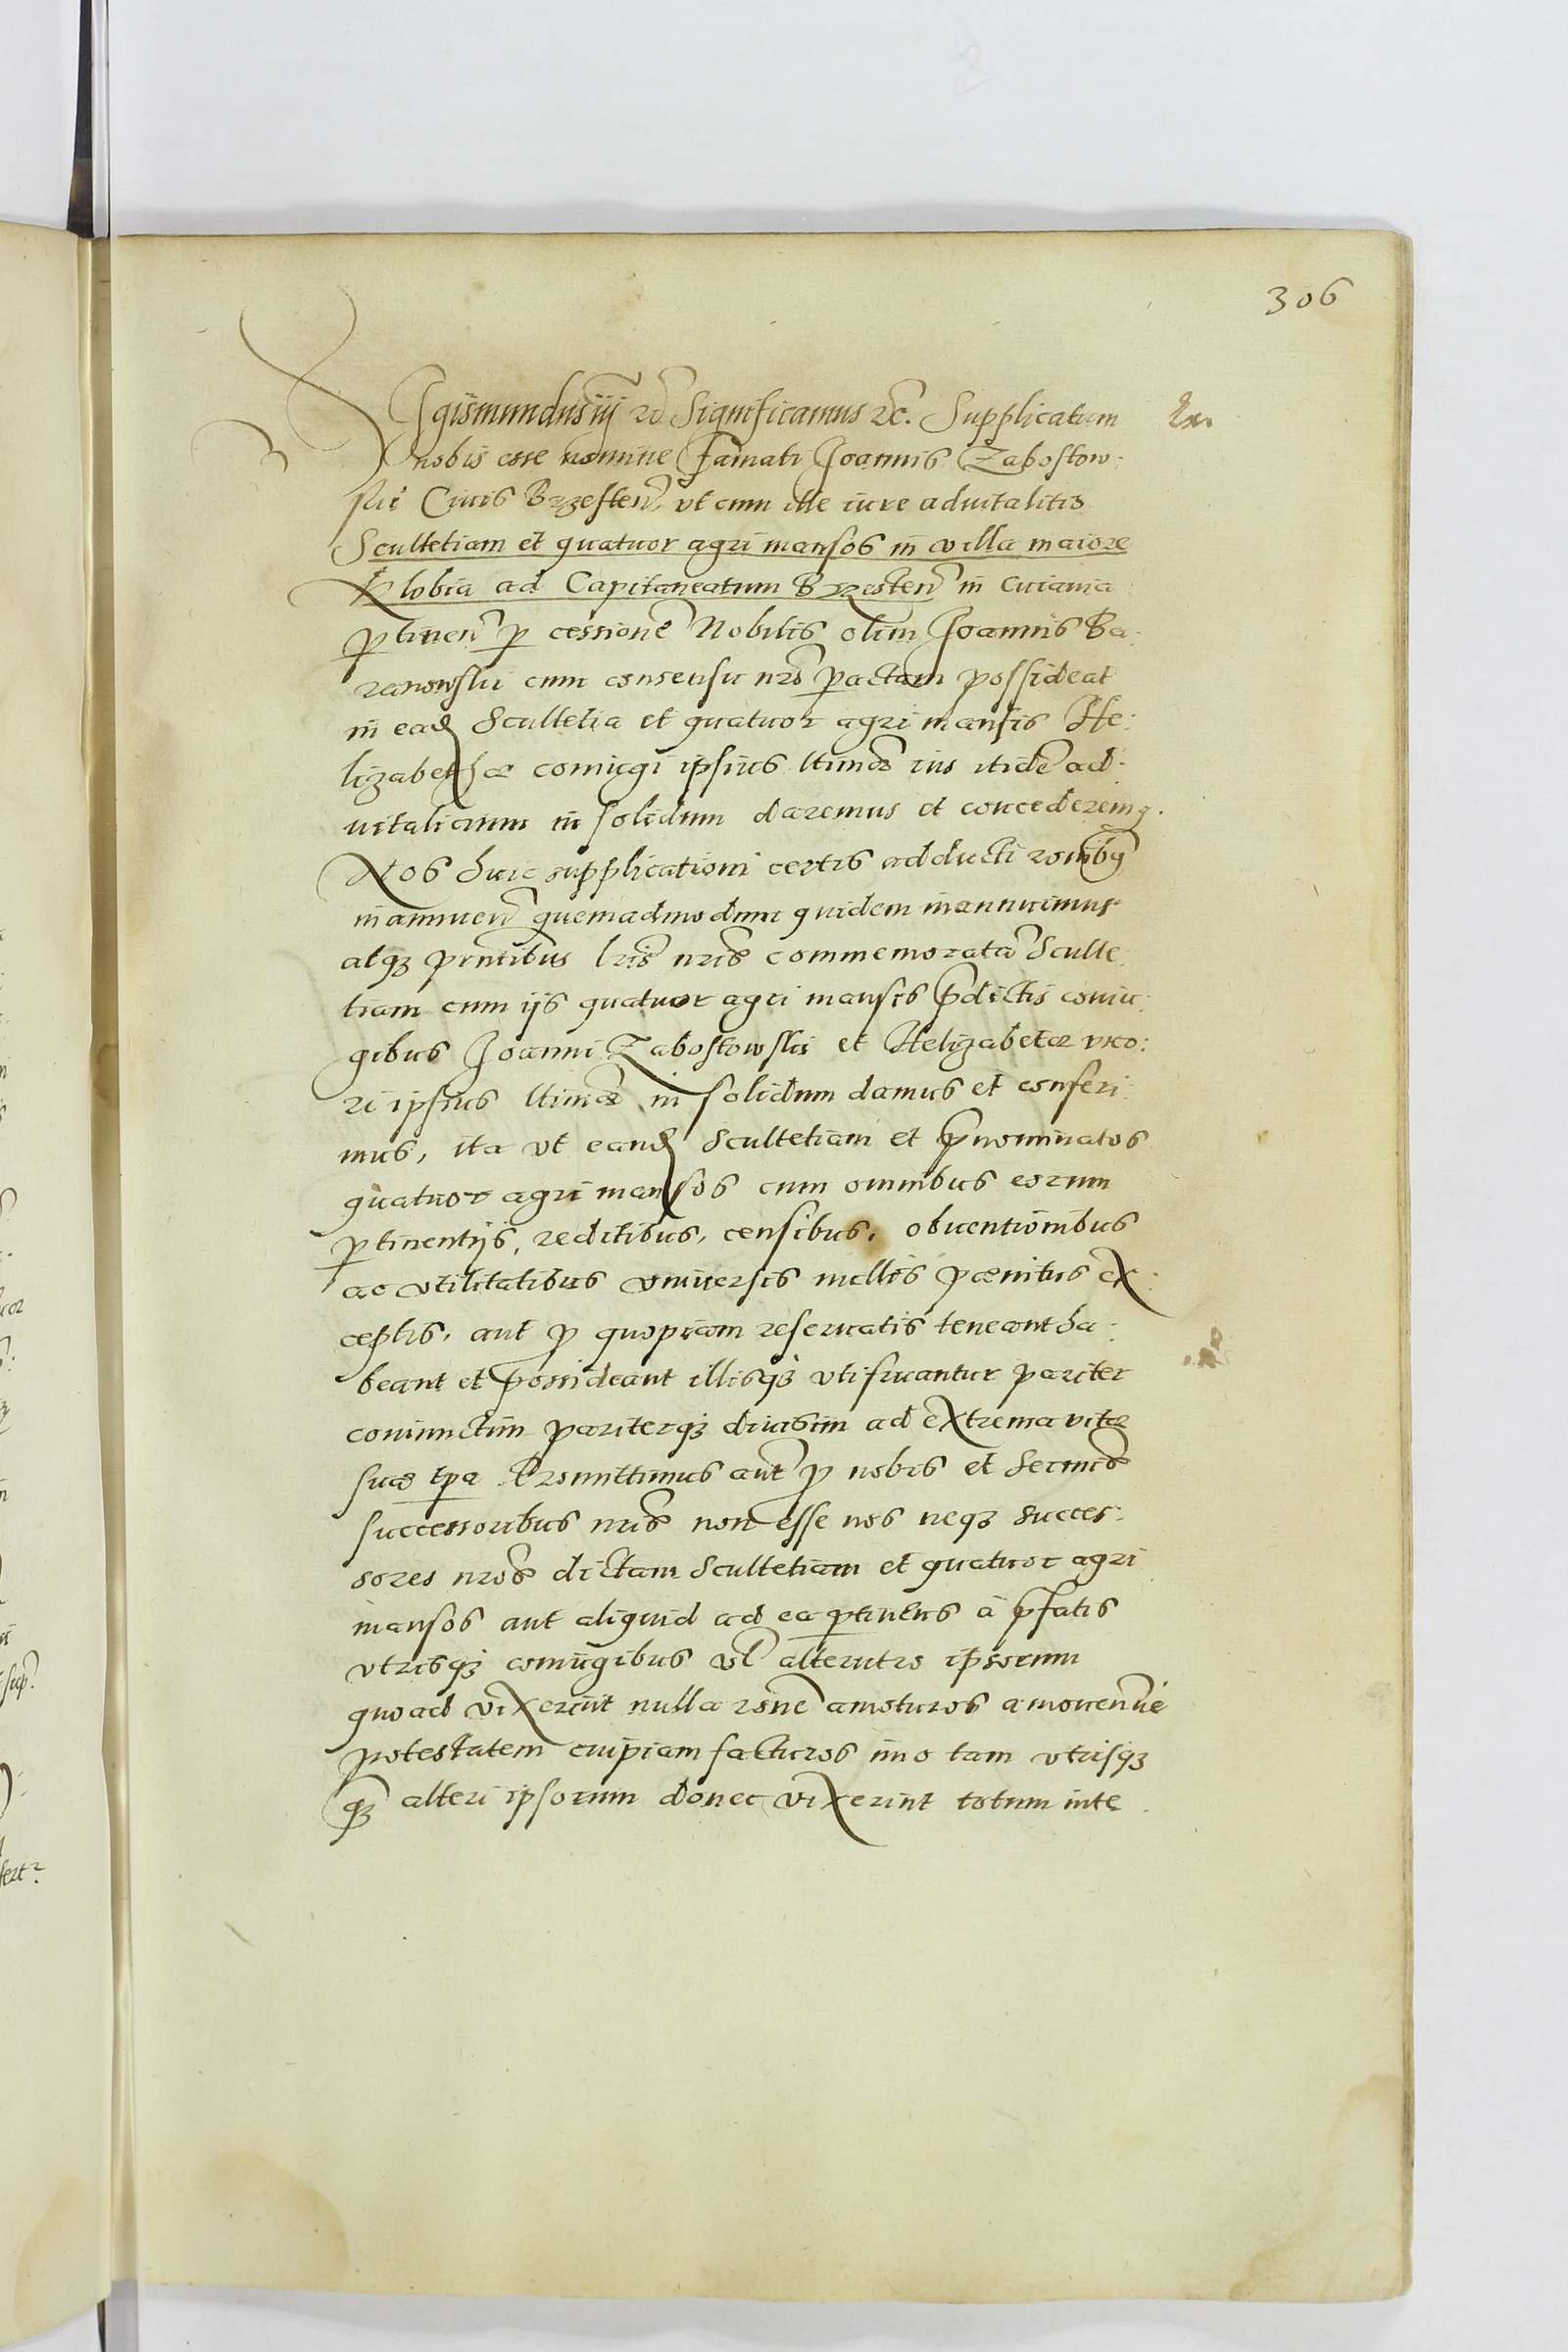 306
Sigismundus iij etc Significamus etc. Supplicatum
nobis esse nomine Famati Joannis Zabostow:
skii Civis Brzesten, vt cum ille iure advitalitio
Scultetiam et quatuor agri mansos in villa maiore
Klobia ad Capitaneatum Brzesten in Cuiavia
ptinen p cessione Nobilis olim Joannis Ba:
ranowskii cum consensu nro pactam possideat
in ead Scultetia et quatuor agri mansis He:
lizabethæ coniugi ipsius ltimæ ius itide ad:
vitalicium in solidum daremus et concederemq.
Nos huic supplicationi certis adducti ronibq
inannuen quemadmodum quidem inannuimus
atqz pntibus lris nris commemorata Sculte:
tiam cum ijs quatuor agri mansis pdictis coniu:
gibus Joanni Zabostowskii et Helizabetæ vxo:
ri ipsius ltimæ in solidum damus et conferi:
mus, ita vt eand Scultetiam et pnominatos
quatuor agri mansos cum omnibus eorum
ptinentijs, reditibus, censibus, obventionibus
ac vtilitatibus vniversis nullis pænitus ex:
ceptis, aut p quopiam reservatis teneant ha:
beant et possideant illisqz vtifruantur pariter
coniunctim pariterqz divisim ad extrema vitæ
suæ tpa Promittimus aut p nobis et Sermis
successoribus nris non esse nos neqz succes:
sores nros dictam Scultetiam et quatuor agri
mansos aut aliquid ad ea ptinens à pfatis
vtrisqz coniugibus vl alterutro ipsorum
quoad vixerint nulla rone amoturos amovendiue
potestatem cuipiam facturos imo tam vtrisqz
qz alteri ipsorum donec vixerint totum inte